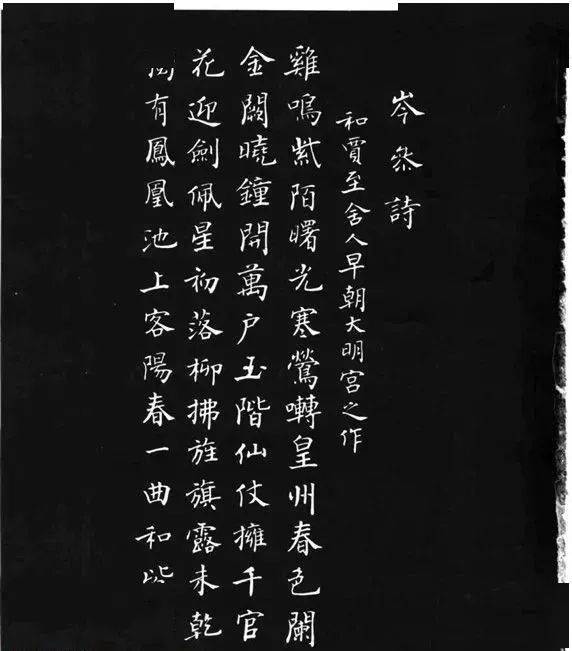 岑叅詩
和賈至舍人早朝大明宮之作
雞鳴紫陌曙光寒鶯囀皇州春色闌
金闕曉鐘開萬戶玉階仙仗擁千官
花迎劍佩星初落柳拂旌旗露未乾
有鳳凰池上客陽春一曲和